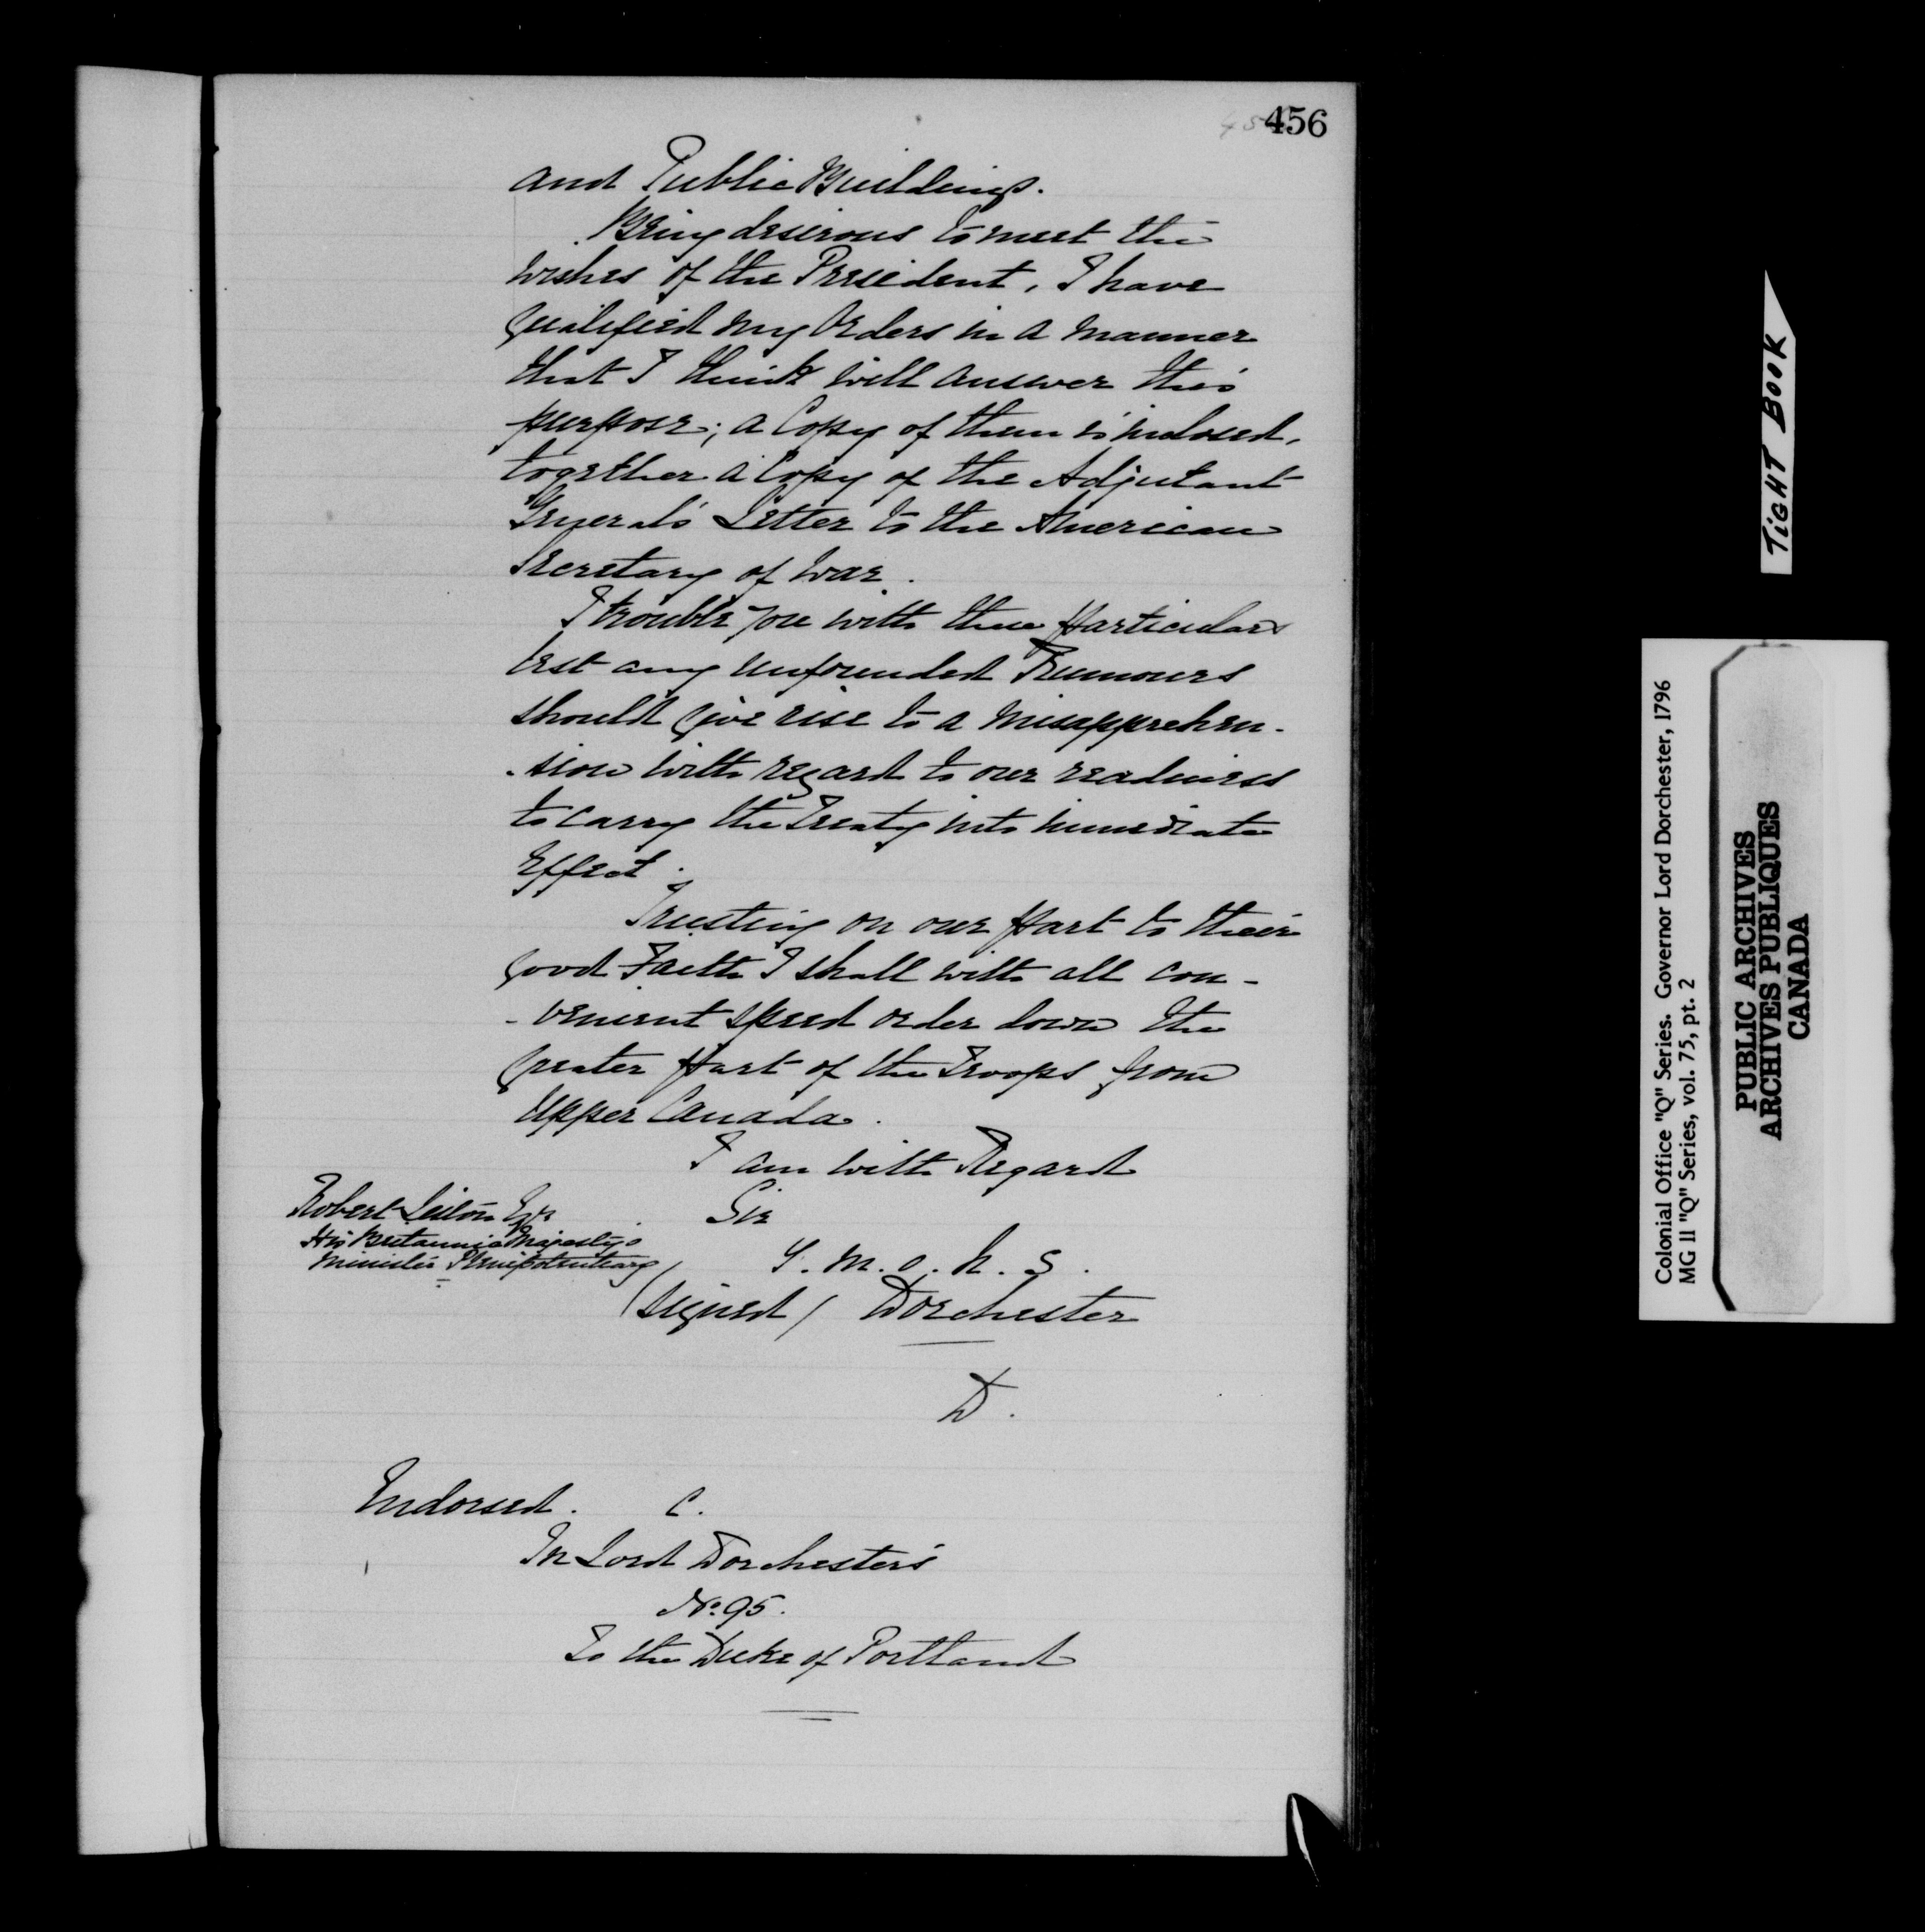 456
and Public Buildings.
Being desirous to meet the
wishes of the President, I have
qualified my Orders in a manner
that I think will answer this
purpose; a Copy of them is inclosed,
together a Copy of the Adjutant
General's Letter to the American
Secretary of War.
I trouble you with these particulars
lest any unfounded Rumours
should give rise to a misapprehen-
-sion with regard to our readiness
to carry the Treaty into immediate
Effect.
Trusting on our part to their
good Faith I shall with all con-
-venient speed order down the
greater part of the Troops from
Upper Canada.
I am with Regard
Sir
Robert Liston Esqr
His Britannic Majesty's
Minister Plenipotentiary
Y. M. O. H. S.
(signed) Dorchester
D.
Endorsed. C.
In Lord Dorchester's
No. 95.
To the Duke of Portland
TIGHT BOOK
Colonial Office "Q" Series. Governor Lord Dorchester, 1796
MG 11 "Q" Series, vol. 75, pt. 2
PUBLIC ARCHIVES
ARCHIVES PUBLIQUES
CANADA